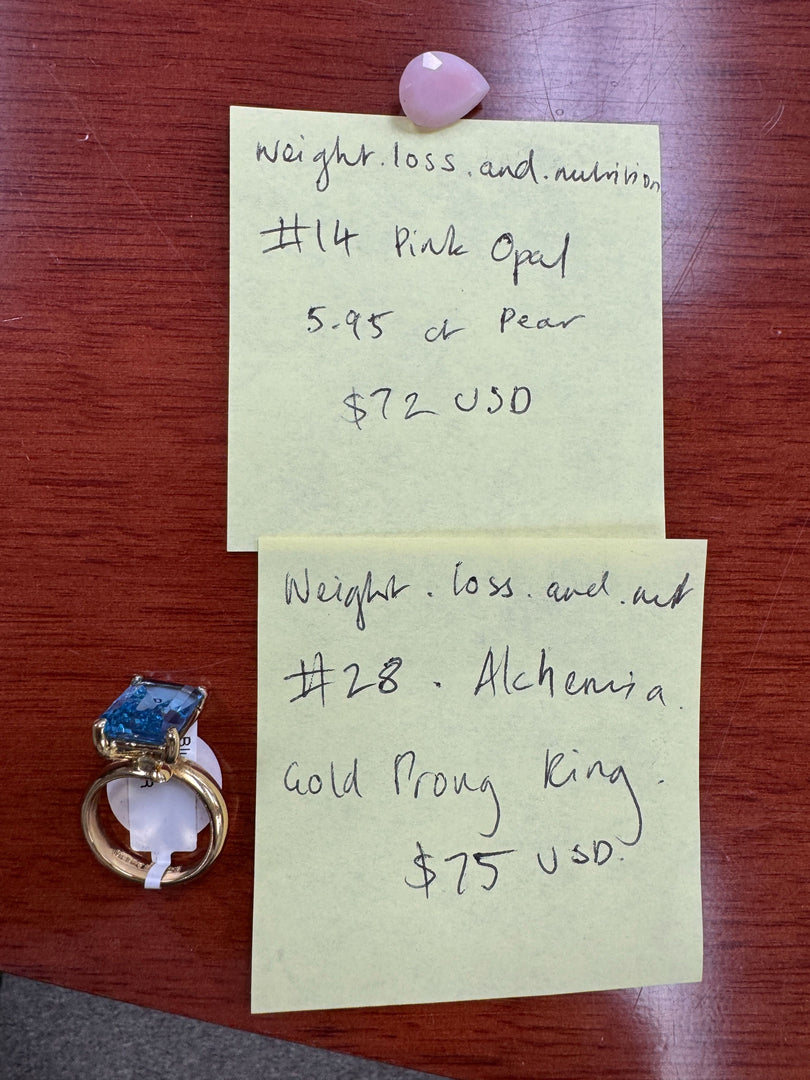 Weight.loss.and.nutrition
#14 Pink Opal
5.95 ct Pear
$72 USD
Weight.loss.and.nut
#28. Alchemia.
Gold Prong Ring.
$75 USD.